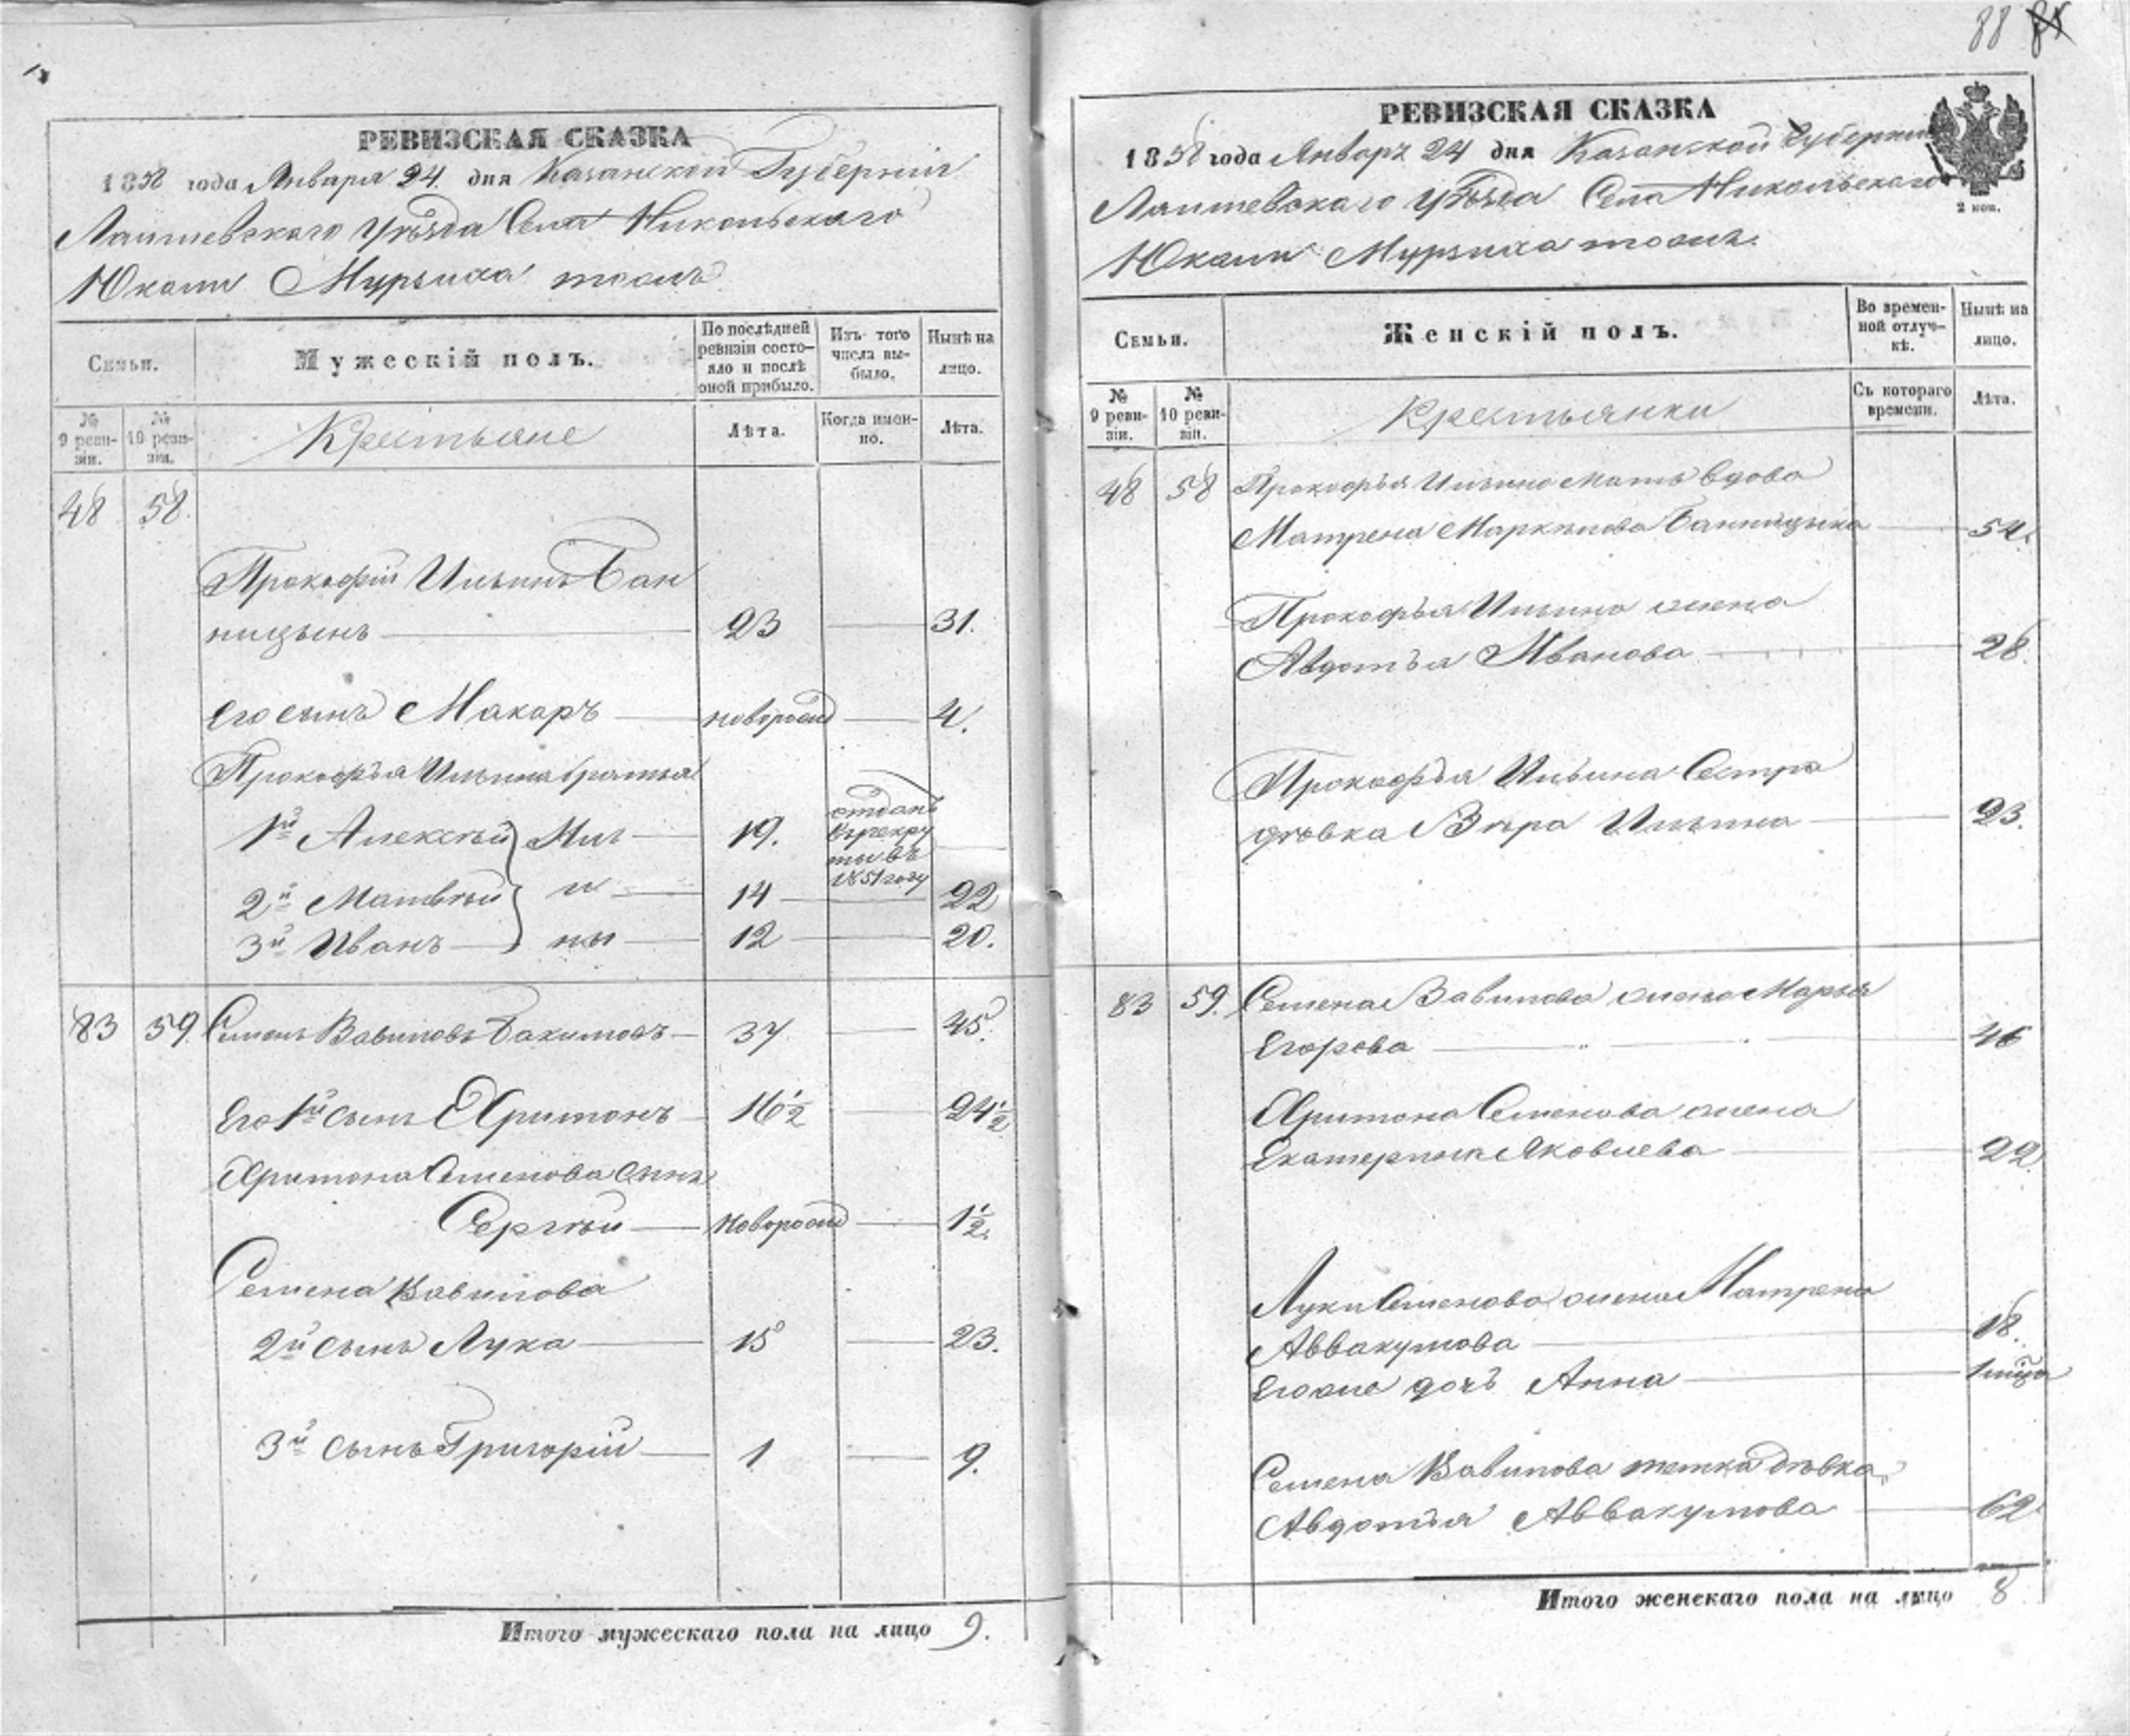 РЕВИЗСКАЯ СКАЗКА
1858 года Января 24 дня Казанской Губерніи
Лаишевскаго Уѣзда Села Никольскаго
Юкачи Мурзиха тожъ
Семьи.
Мужескій полъ.
По послѣдней ревизіи состояло и послѣ оной прибыло.
Изъ того числа выбыло.
Нынѣ на лицо.
№ 9 ревизіи.
№ 10 ревизіи.
Крестьяне
Лѣта.
Когда именно.
Лѣта.
48 58
Прокофій Ильинъ Бан
ницынъ 23 31.
Его сынъ Макаръ новорожд 4.
Прокофья Ильина братья
1й Алексѣй Иль 19. отданъ
въ рекру
ты въ
1851 году
2й Матвѣй и 14 22
3й Иванъ ны 12 20.
83 59. Семенъ Вавиловъ 37 45.
Его 1й сынъ Харитонъ 16½ 24½
Харитона Семенова сынъ
Сергѣй Новорожд 1½.
Семена Вавилова
2й сынъ Лука 15 23.
3й сынъ Григорій 1 9.
Итого мужескаго пола на лицо 9.
88 
РЕВИЗСКАЯ СКАЗКА
1858 года Январь 24 дня Казанской Губерніи
Лаишевскаго Уѣзда Села Никольскаго
Юкачи Мурзиха тожъ.
2 коп.
Семьи.
Женскій полъ.
Во временной отлучкѣ.
Нынѣ на лицо.
№ 9 ревизіи.
№ 10 ревизіи.
Крестьянки
Съ котораго времени.
Лѣта.
48 58 Прокофья Ильина мать вдова
Матрена Маркелова Банницына 54.
Прокофья Ильина жена
Авдотья Иванова 28.
Прокофья Ильина Сестра
дѣвка Вѣра Ильина 23.
83 59. Семена Вавилова жена Марья
Егорова 46
Харитона Семенова жена
Екатерина Яковлева 22.
Луки Семенова жена Матрена
Аввакумова 18.
Его же дочь Анна 1 мѣсяца
Семена Вавилова тетка дѣвка
Авдотья Аввакумова 62.
Итого женскаго пола на лицо 8